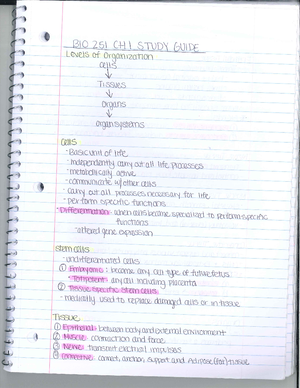 BIO 251 CH 1 STUDY GUIDE
Levels of Organization
cells
Tissues
organs
organ systems
cells
- Basic unit of life
- Independently carry out all life processes
- metabolically active
- communicate w/other cells
- carry out all processes necessary for life
- perform specific functions
- Differentiation: when cells become specialized to perform specific
functions
- altered gene expression
stem cells
- undifferentiated cells
① Embryonic: become any cell type of future fetus
- Totipotent: any cell including placenta
② Tissue-specific stem cells
- medically used to replace damaged cells or in tissue
Tissue
① Epithelial: between body and external environment
② Muscle: contraction and force
③ Nerve: transmit electrical impulses
④ Connective: connect, anchor, support and adipose (fat) tissue